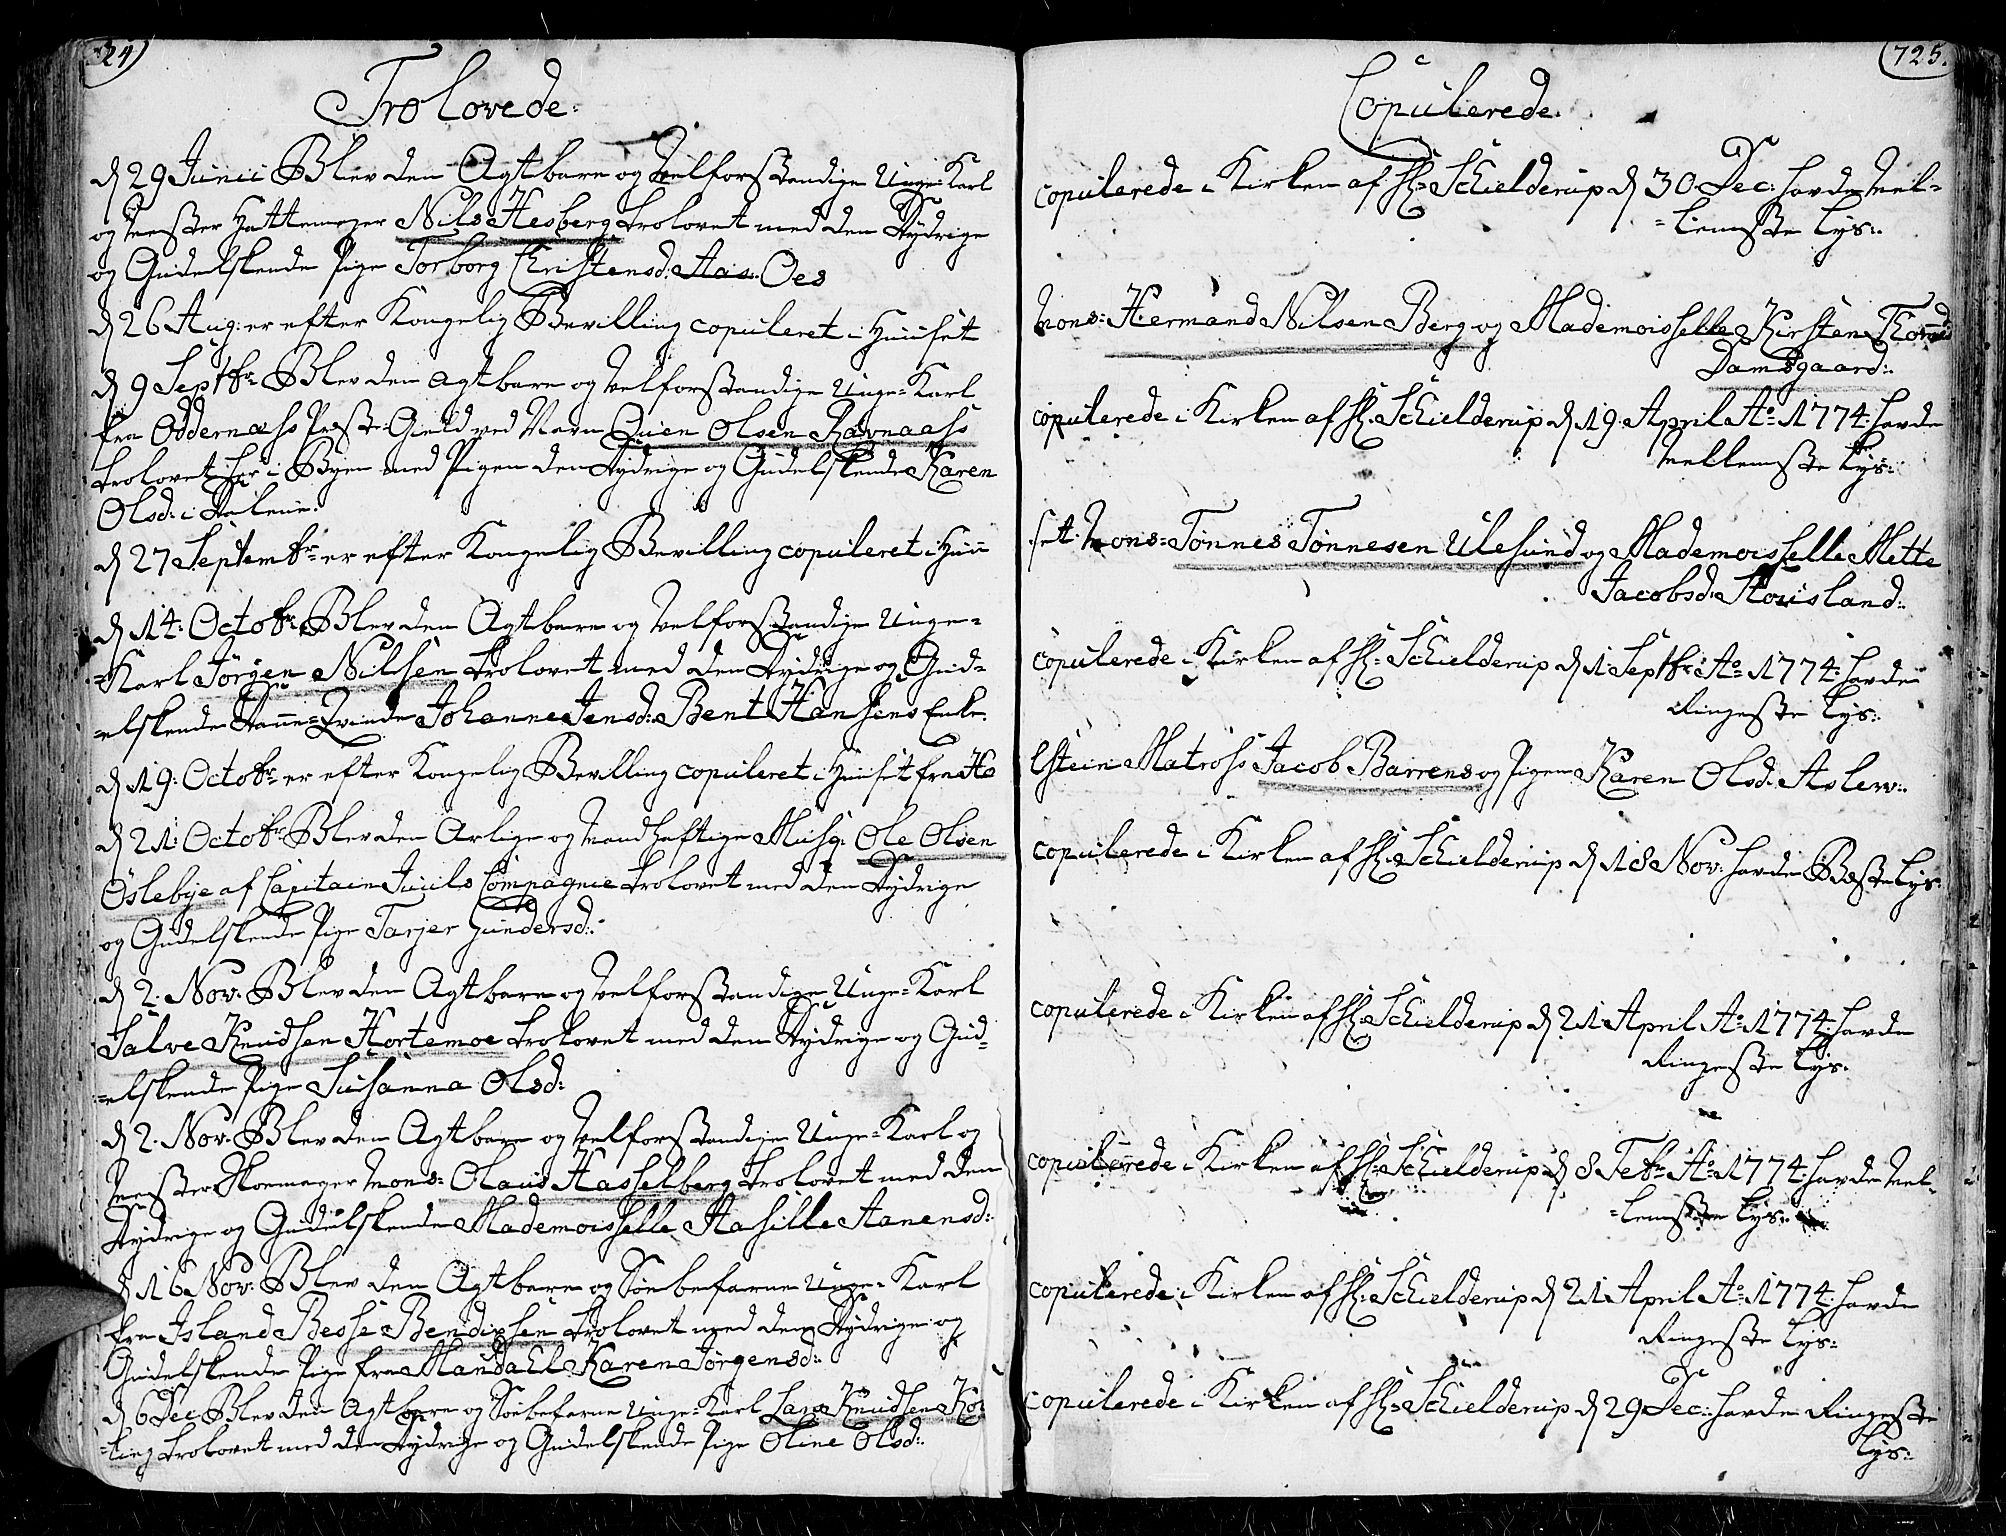 724)
Trolovede:
d 29 Junii Blev den Agtbare og Velforstandige Unge Karl
og Mester Hattemager Nils Hesberg trolovet med den Dydrige
og Gudelskende Pige Torborg Christensd: Aas: Oes
d 26 Aug: er efter Kongelig Bevilling copuleret i Huuset
d 9 Septbr: Blev den agtbare og Velforstandige Unge=Karl
fra Oddernæss Præste=Gield ved Navn Ouen Olsen Ravnaass
trolovet her i Byen med Pigen den Dydrige og Gudelskende Karen
Olsd: i Dalene:
d 27 Septembr: er efter Kongelig Bevilling copuleret i Huu
d 14: Octobr: Blev den Agtbare og Velforstandige Unge=
=Karl Jørgen Nilsen trolovet med den Dydrige og Gud=
=elskende Danne=Qvinde Johanne Jensd: Bent Hansens Enke.
d 19: Octobr: er efter Kongelig Bevilling copuleret i Huuset fra Ho
d 21: Octobr: Blev den Ærlige og Mandhaftige Musq: Ole Olsen
Oslebye af Capitain Juuls Compagnie trolovet med den Dydrige
og Gudelskende Pige Tarjer Gundersd:
d 2. Nov: Blev den Agtbare og Velforstandige Unge=Karl
Salve Knudsen Hortemoe trolovet med den Dydrige og Gud=
=elskende Pige Susanna Olsd:
d 2. Nov: Blev den Agtbare og Velforstandige Unge=Karl og
Mester Skomager Mons: Olaus Hasselberg trolovet med den
Dydrige og Gudelskende Mademoisselle Aasille Aanensd:
d 16 Nov: Blev den Agtbare og Søebefarne Unge=Karl
fra Island Besse Bendixsen trolovet med den Dydrige og
Gudelskende Pige fra Mandahl Karen Jørgensd:
d 6 Dec Blev den Agtbare og Søebefarne Unge=Karl Lars Knudsen Kø
=ling trolovet med den Dydrige og Gudelskende Pige Oline Olsd:
725.
Copulerede.
copulerede i Kirken af H: Schielderup d 30 Dec: havde Mel=
=lemste Lys:
Mons: Hermand Nilsen Berg og Mademoisselle Kirsten Thomd
Damsgaard:
copulerede i Kirken af H: Schielderup d 19 April A: 1774: havde
Mellemste Lys:
set Mons: Tønnes Tønnesen Ulesund og Mademoisselle Mette
Jacobsd: Stousland:
copulerede i Kirken af H: Schielderup d 1 Septbr: A: 1774: havde
Ringeste Lys:
lstein Matross Jacob Barrens og Pigen Karen Olsd: Aslew:
copulerede i Kirken af H: Schielderup d 18 Nov: havde Beste Lys:
copulerede i Kirken af H: Schielderup d 21 April A: 1774: havde
Ringeste Lys:
copulerede i Kirken af H: Schielderup d 8 Febr: A: 1774: havde Mel=
=lemste Lys:
copulerede i Kirken af H: Schielderup d 21 April A: 1774: havde
Ringeste Lys:
copulerede i Kirken af H: Schielderup d 29 Dec: havde Ringeste
Lys: